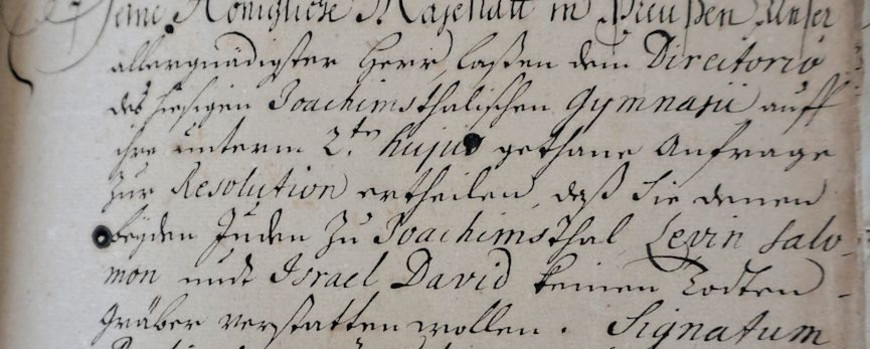 Seine Königliche Majestätt in Preußen Unser
allergnädigster Herr, laßen dem Directorio
des hiesigen Joachimsthalischen Gymnasii auff
ihre unterm 2.ten hujus gethane Anfrage
zur Resolution ertheilen, daß Sie denen
beyden Juden zu Joachimsthal Levin Salo-
mon undt Israel David keinen Todten-
gräber verstatten wollen. Signatum